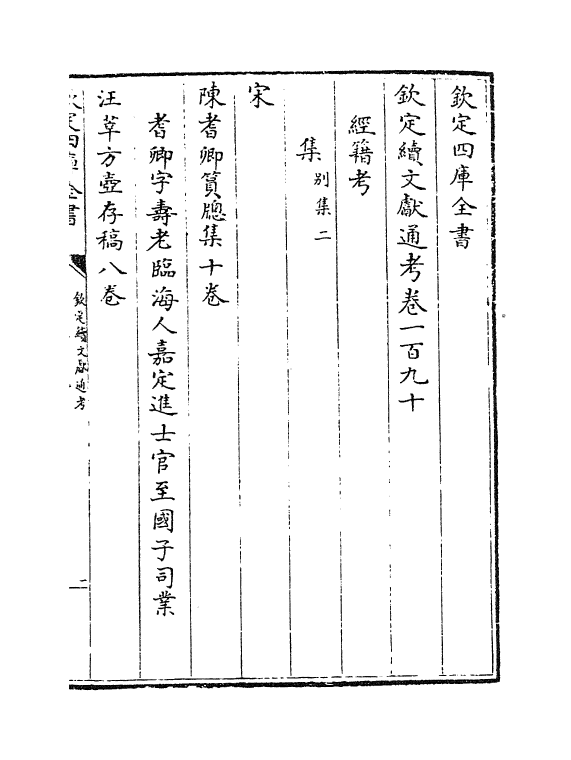 欽定四庫全書
欽定續文獻通考卷一百九十
經籍考
集別集二
宋
陳耆卿篔牕集十卷
耆卿字壽老臨海人嘉定進士官至國子司業
汪莘方壺存稿八卷
欽定四庫全書
欽定續文獻通考